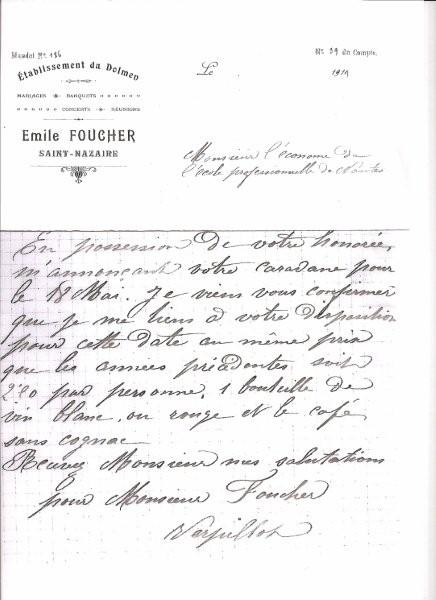 Mandat No. 186
No. 39 du Compte.
Établissement du Dolmen
MARIAGES BANQUETS
CONCERTS RÉUNIONS
Emile FOUCHER
SAINT-NAZAIRE
Le 191
Monsieur l'économe de
l'école professionnelle de Nantes
En possession de votre honorée,
m'annonçant votre caravane pour
le 18 Mai. Je viens vous confirmer
que je me tiens à votre disposition
pour cette date au même prix
que les années précédentes soit
par personne, 1 bouteille de
vin blanc, ou rouge et le café
sans cognac
Recevez Monsieur mes salutations
pour Monsieur Foucher